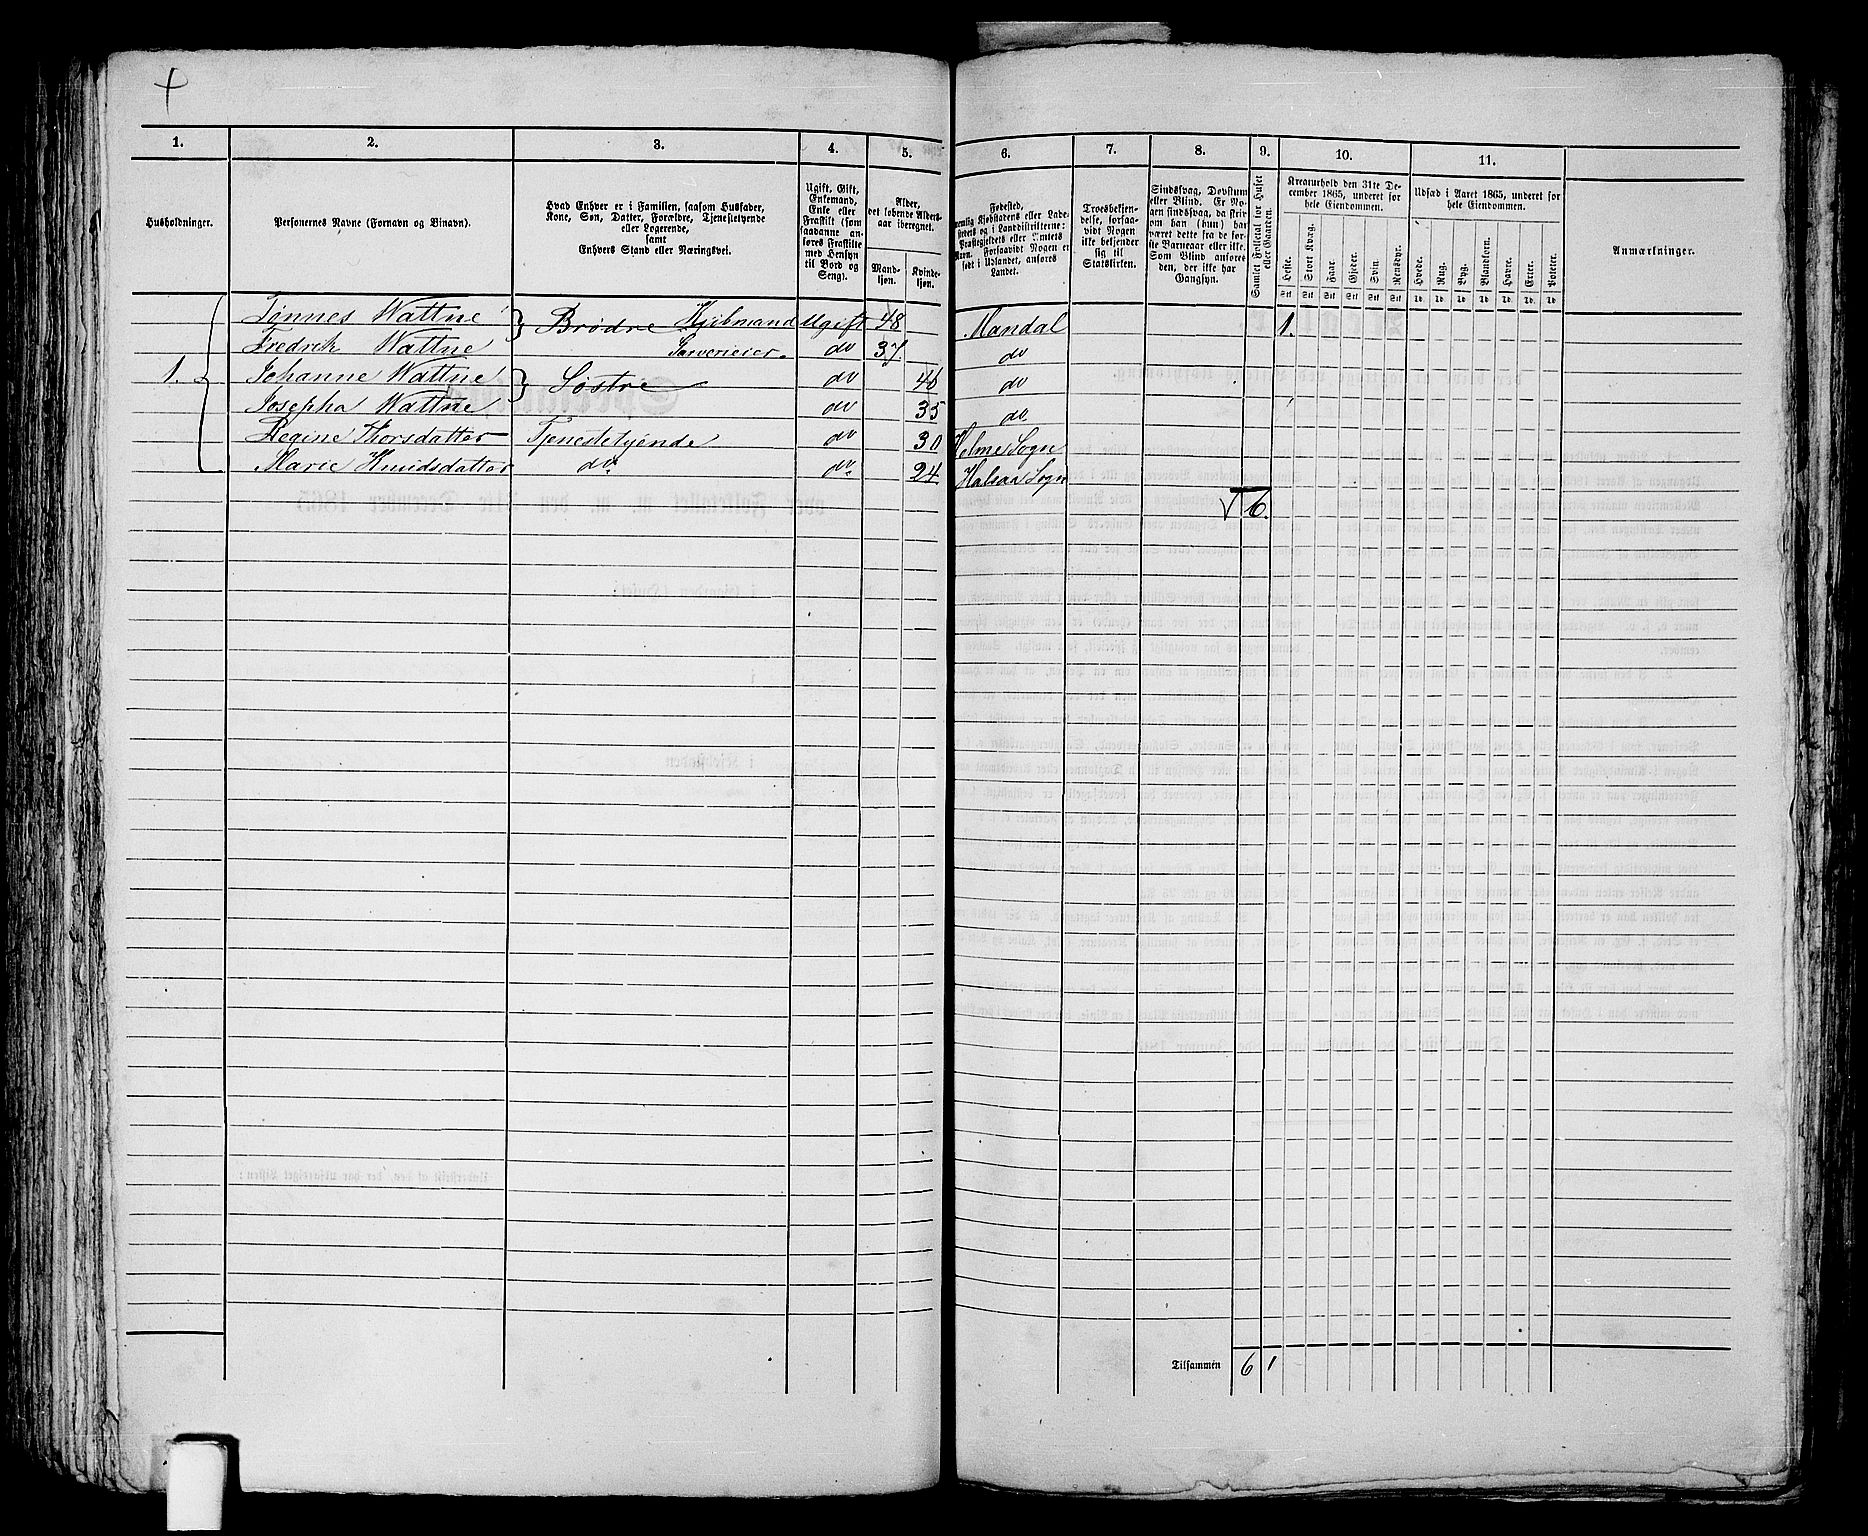 1. 2. 3. 4. 5. 6. 7. 8. 9. 10. 11.
Husholdninger.
Personernes Navne (Fornavn og Binavn).
Hvad Enhver er i Familien, saasom Husfader,
Kone, Søn, Datter, Forældre, Tjenestetyende
eller Logerende,
samt
Enhvers Stand eller Næringsvei.
Ugift, Gift,
Enkemand,
Enke eller
Fraskilt (som
saadanne an-
føres Fraskilte
med Hensyn
til Bord og
Seng).
Alder,
det løbende Alders-
aar iberegnet.
Mand-
kjøn.
Kvinde-
kjøn.
Fødested,
nemlig Kjøbstadens eller Lade-
stedets og i Landdistrikterne:
Præstegjeldets eller Amtets
Navn. Forsaavidt Nogen er
født i Udlandet, anføres
Landet.
Troesbekjen-
delse, forsaa-
vidt Nogen
ikke bekjender
sig til
Statskirken.
Sindssvag, Døvstum
eller Blind. Er No-
gen sindssvag, da skriv
om han (hun) har
været dette fra de før-
ste Barneaar eller ikke.
Som Blind anføres
den, der ikke har
Gangsyn.
Samlet Folketal for Huset
eller Gaarden.
Kreaturhold den 31te De-
cember 1865, underet for
hele Eiendommen.
Heste. Stort Kvæg. Faar. Gjeder. Svin. Rensdyr.
Udsæd i Aaret 1865, underet for
hele Eiendommen.
Hvede. Rug. Byg. Blandkorn. Havre. Erter. Poteter.
Anmærkninger.
Tønnes Wattne Brødre Kjøbmand Ugift 48 Mandal 1.
Fredrik Wattne Garverieier. do 37 do
1. Johanne Wattne Søstre do 46 do
Josepha Wattne do 35 do
Regine Thorsdatter Tjenestetyende do 30 Holme Sogn
Marie Knudsdatter do do 24 Halsaa Sogn
6.
Tilsammen 6 1